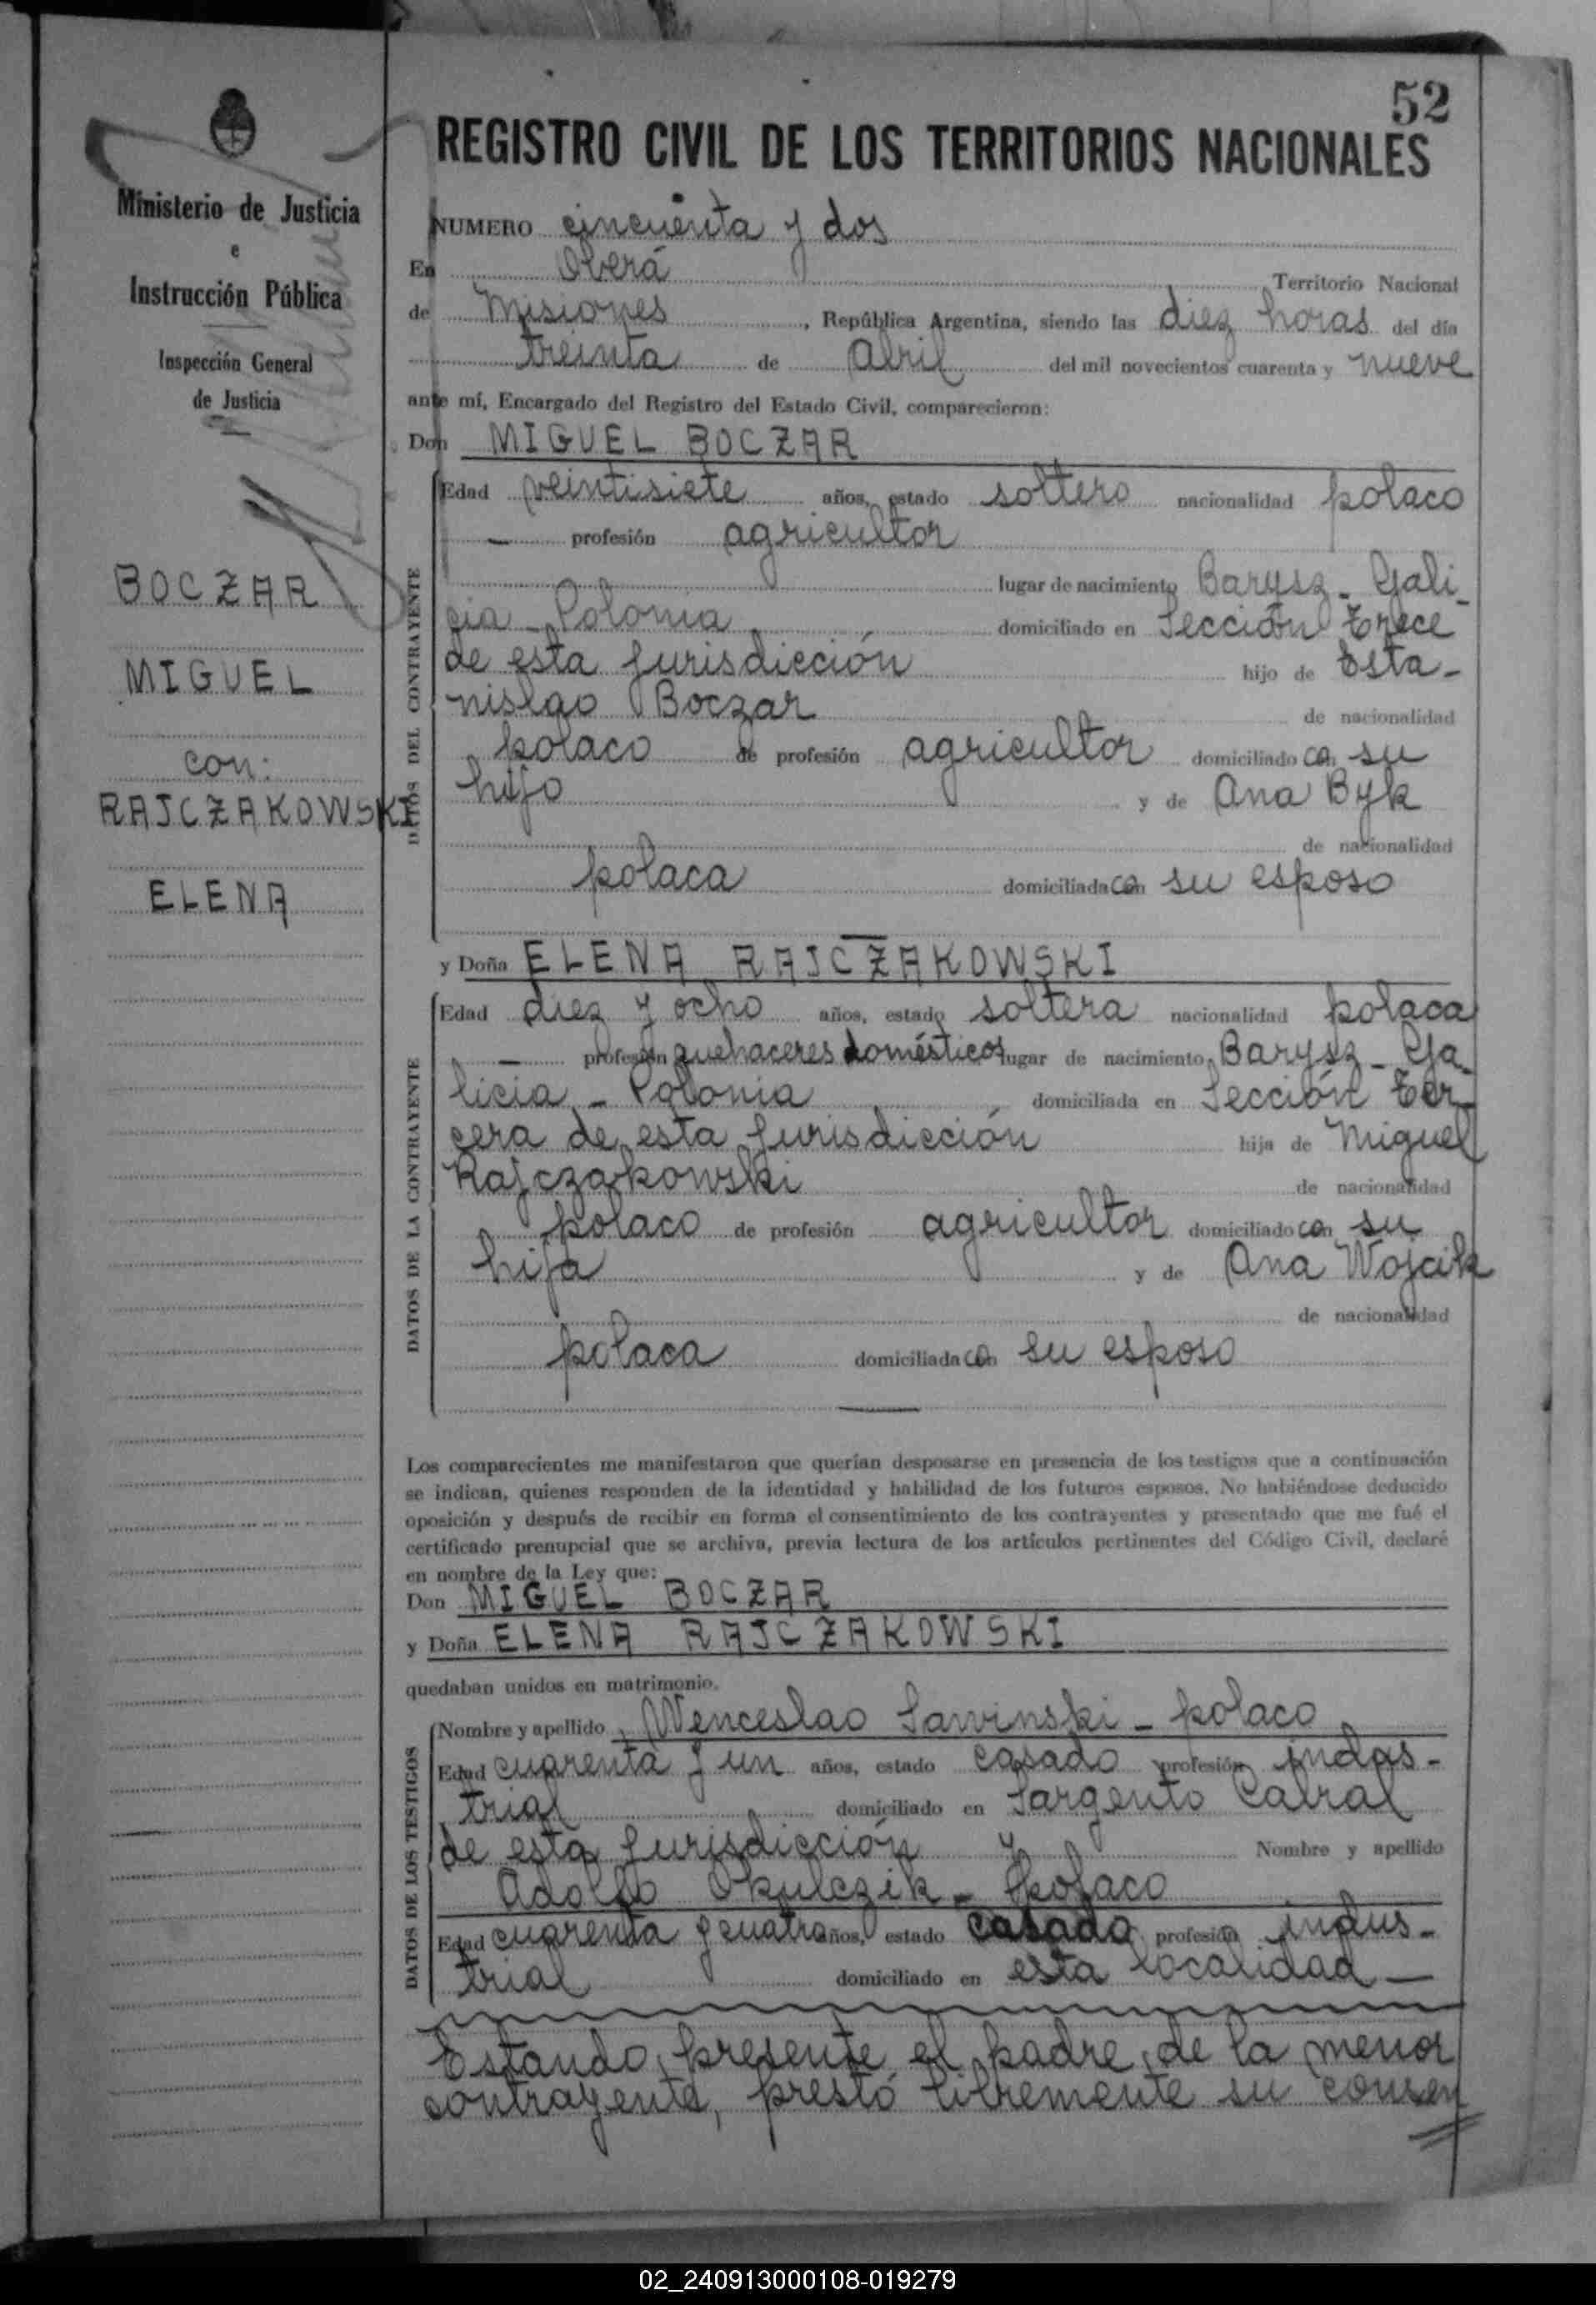 52
REGISTRO CIVIL DE LOS TERRITORIOS NACIONALES
Ministerio de Justicia
e
Instrucción Pública
Inspección General
de Justicia
BOCZAR
MIGUEL
con:
RAJCZAKOWSKI
ELENA
NUMERO cincuenta y dos
En Oberá Territorio Nacional
de Misiones, República Argentina, siendo las diez horas del día
treinta de Abril del mil novecientos cuarenta y nueve
ante mí, Encargado del Registro del Estado Civil, comparecieron:
Don MIGUEL BOCZAR
DATOS DEL CONTRAYENTE
Edad veintisiete años, estado soltero nacionalidad polaco
— profesión agricultor
lugar de nacimiento Barysz - Gali-
cia - Polonia domiciliado en Sección Trece
de esta jurisdicción hijo de Esta-
nislao Boczar de nacionalidad
polaco de profesión agricultor domiciliado con su
hijo y de Ana Byk
de nacionalidad
polaca domiciliada con su esposo
y Doña ELENA RAJCZAKOWSKI
DATOS DE LA CONTRAYENTE
Edad diez y ocho años, estado soltera nacionalidad polaca
— profesión quehaceres domésticos lugar de nacimiento Barysz - Ga-
licia - Polonia domiciliada en Sección Ter-
cera de esta jurisdicción hija de Miguel
Rajczakowski de nacionalidad
polaco de profesión agricultor domiciliado con su
hija y de Ana Wojcik
de nacionalidad
polaca domiciliada con su esposo
Los comparecientes me manifestaron que querían desposarse en presencia de los testigos que a continuación
se indican, quienes responden de la identidad y habilidad de los futuros esposos. No habiéndose deducido
oposición y después de recibir en forma el consentimiento de los contrayentes y presentado que me fué el
certificado prenupcial que se archiva, previa lectura de los artículos pertinentes del Código Civil, declaré
en nombre de la Ley que:
Don MIGUEL BOCZAR
y Doña ELENA RAJCZAKOWSKI
quedaban unidos en matrimonio.
DATOS DE LOS TESTIGOS
Nombre y apellido, Wenceslao Sawinski - polaco
Edad cuarenta y un años, estado casado profesión indus-
trial domiciliado en Sargento Cabral
de esta jurisdicción y Nombre y apellido
Adolfo Okulczik - polaco
Edad cuarenta y cuatro años, estado casado profesión indus-
trial domiciliado en esta localidad —
Estando presente el padre de la menor
contrayente, prestó libremente su consen
02_240913000108-019279